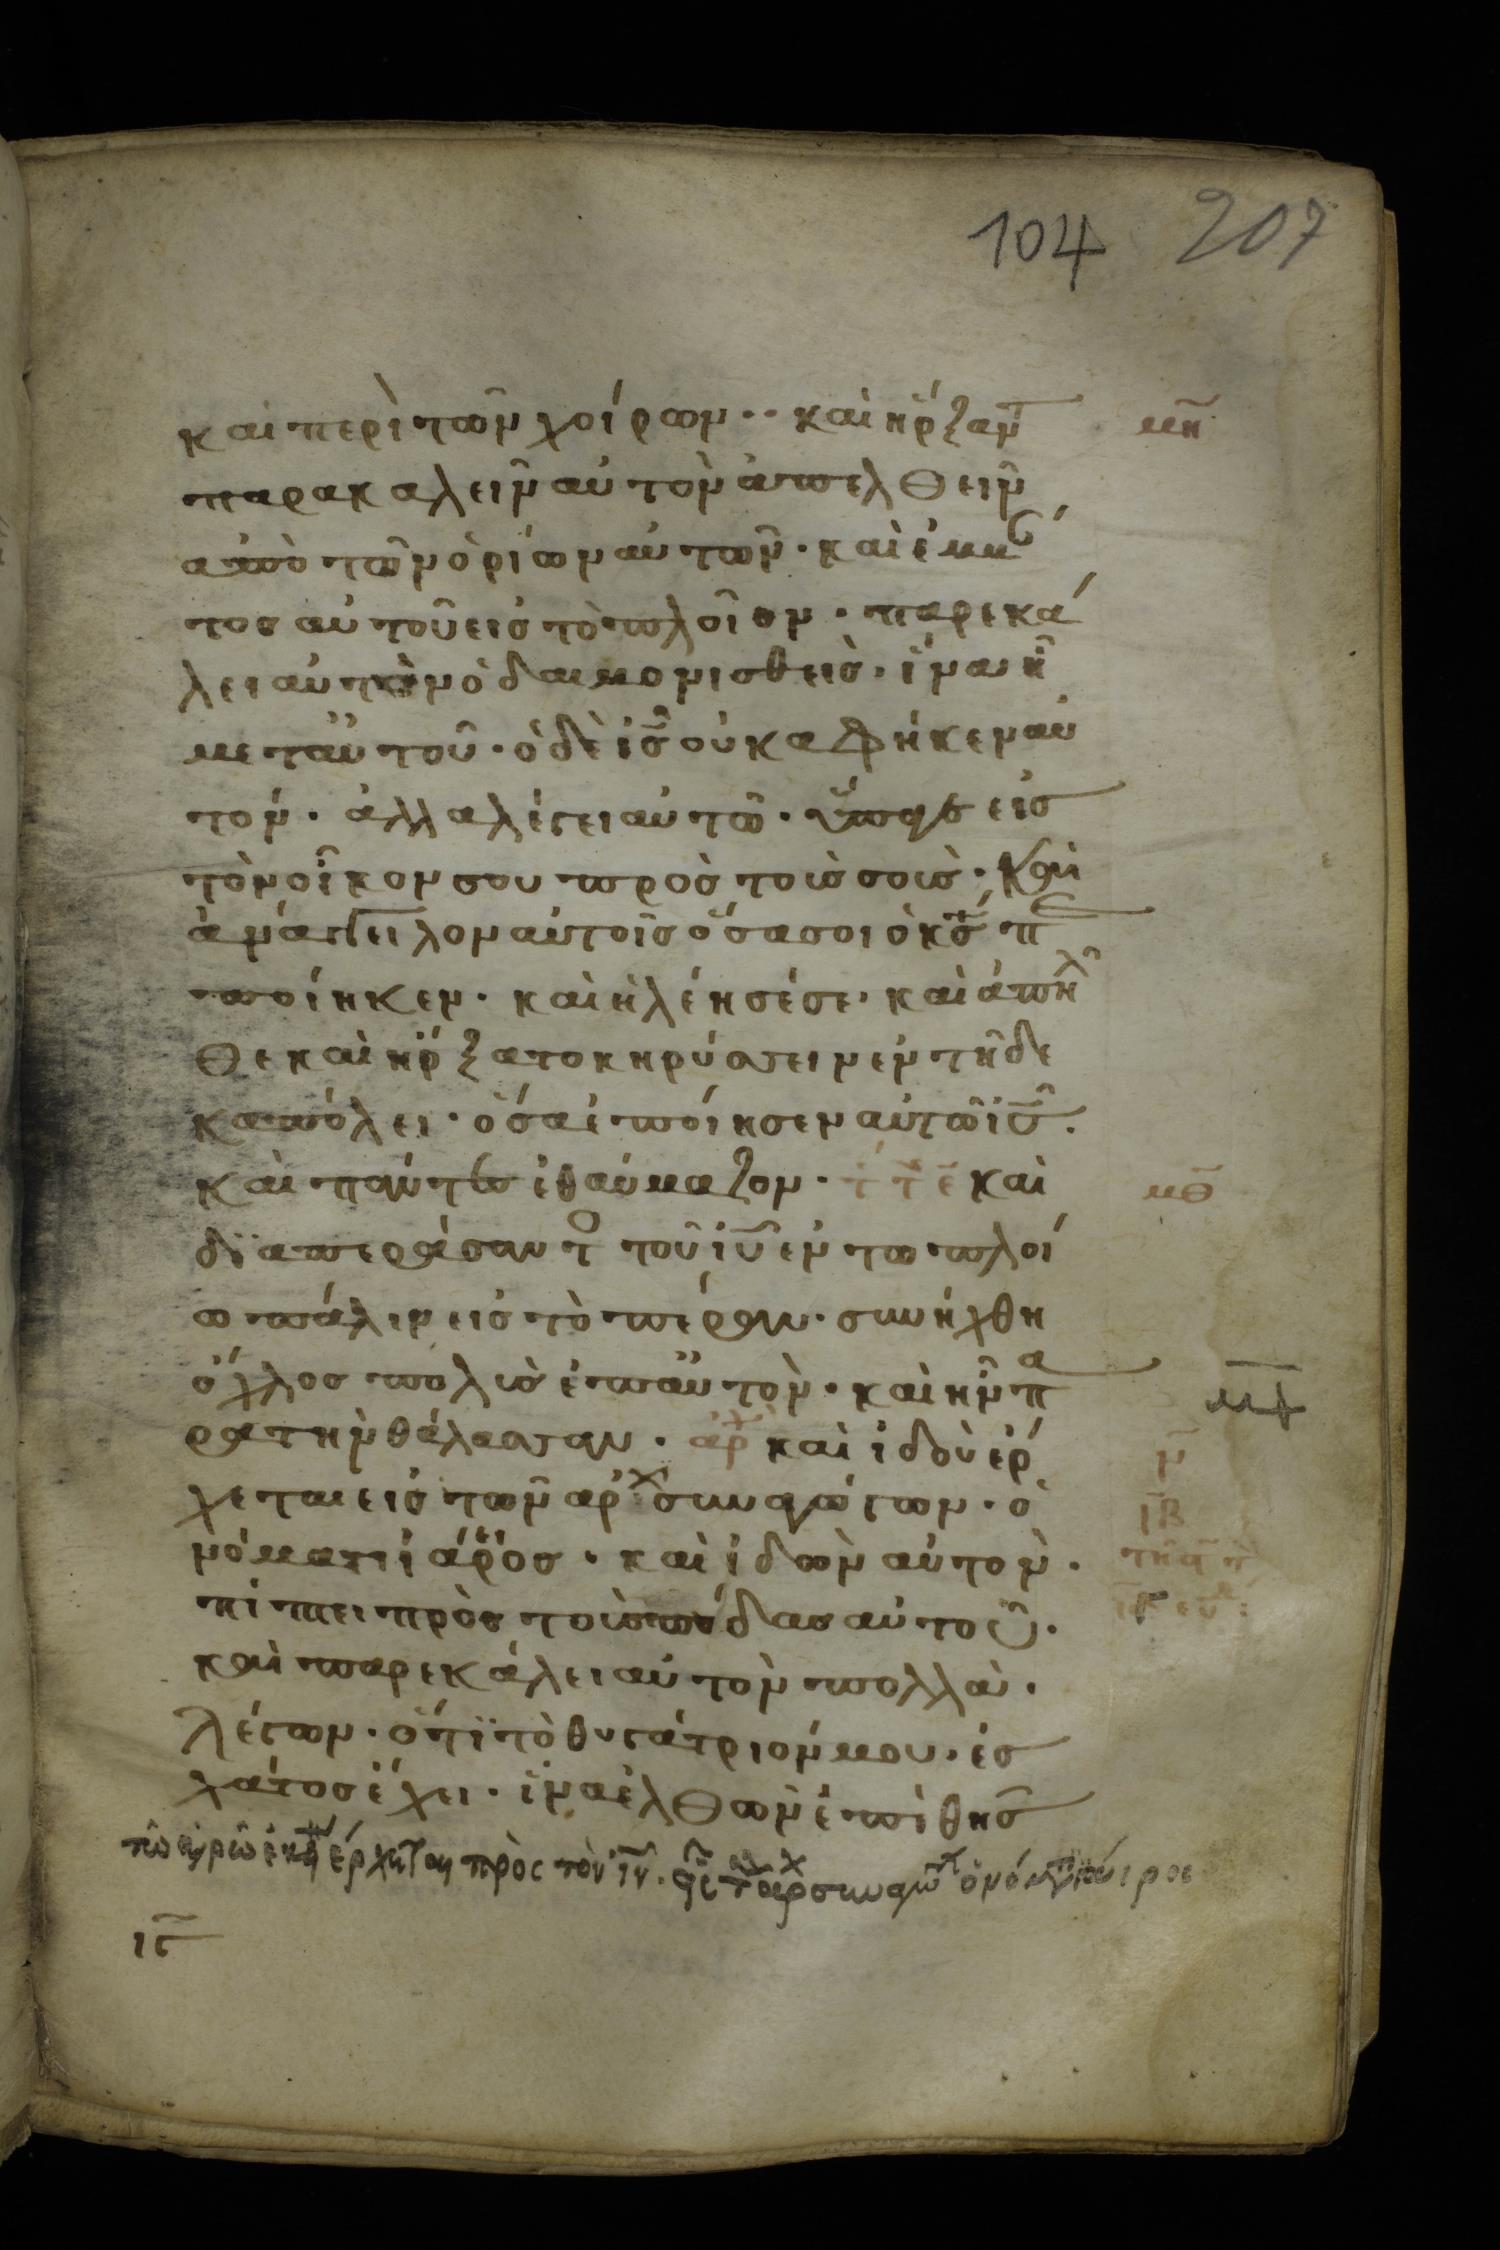 104 207
καὶ περὶ τῶν χοίρων·· καὶ ἤρξαντ
μη
παρακαλεῖν αὐτὸν ἀπελθεῖν
ἀπὸ τῶν ὁρίων αὐτῶν· καὶ ἐμβάν
τος αὐτοῦ εἰς τὸ πλοῖον· παρεκά
λει αὐτὸν ὁ δαιμονισθεὶς· ἵνα ἦ
μετ αὐτοῦ· ὁ δὲ ἰς οὐκ ἀφῆκεν αὐ
τόν· ἀλλα λέγει αὐτῶ· ὕπαγε εἰς
τὸν οἶκον σου πρὸς τοὺς σοὺς· καὶ
ἀνάγγειλον αὐτοῖς ὅσα σοι ὁ κς πε
ποίηκεν· καὶ ἠλέησέ σε· καὶ ἀπῆλ
θε καὶ ἤρξατο κηρύσσειν ἐν τῆ δε
καπόλει· ὅσα ἐποίησεν αὐτῶ ὁ ις·
καὶ πάντες ἐθαύμαζον· τ τ ε καὶ
μθ
διαπεράσαντο τοῦ ιυ ἐν τω πλοί
ω πάλιν εἰς τὸ πέραν· συνήχθη
ὄχλος πολὺς ἐπ αὐτὸν· καὶ ἦν πα
ρὰ τὴν θάλασσαν· ἀρχ καὶ ἰδοὺ ἔρ
ν
χεται εἷς τῶν ἀρχισυναγώγων· ὁ
ιβ
νόματι ἰάειρος· καὶ ἰδὼν αὐτὸν·
πίπτει πρὸς τοὺς πόδας αὐτοῦ·
καὶ παρεκάλει αὐτὸν πολλὰ·
λέγων· ὅτι τὸ θυγάτριόν μου· ἐσ
χάτος ἔχει· ἵνα ἐλθὼν ἐπιθῆς
τῶ καιρῶ ἐκείνω ἔρχεται πρὸς τὸν ιν· εἷς τῶν ἀρχισυναγώγ ὀνόματι ἰάιρος
ιϛ